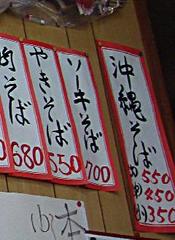 沖縄そば
(大) 550
(中) 450
(小) 350
ソーキそば
700
やきそば
550
肉そば
680
(小)本